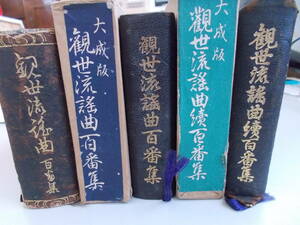 観世流謡曲百番集
大成版
觀世流謡曲百番集
観世流謡曲百番集
大成版
觀世流謡曲續百番集
観世流謡曲續百番集